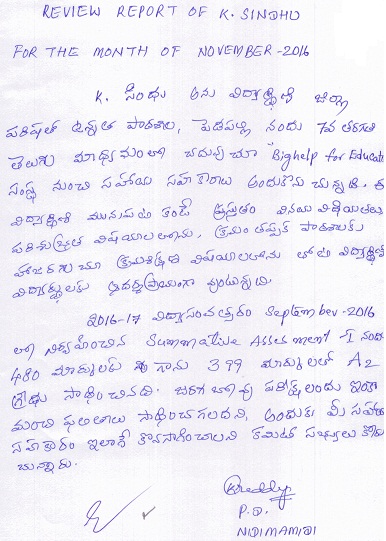 REVIEW REPORT OF K. SINDHU
FOR THE MONTH OF NOVEMBER-2016
K. సింధు అను విద్యార్థిణి జిల్లా
పరిషత్ ఉన్నత పాఠశాల, పెడపల్లి నందు 7వ తరగతి
తెలుగు మాధ్యమంలో చదువుచూ Bighelp for Educate
సంస్థ నుంచి సహాయ సహకారాలు అందుకొనుచున్నది. ఈ
విద్యార్థిణి మునుపటి కంటే ప్రస్తుతం వినయ విధేయతలు
పరిశుభ్రత విషయాలలోను, క్రమం తప్పక పాఠశాలకు
హాజరగుచూ క్రమశిక్షణ విషయాలలోను తోటి విద్యార్థిణి
విద్యార్థులకు ఆదర్శప్రాయంగా వుంటున్నది.
2016-17 విద్యాసంవత్సరం September-2016
లో నిర్వహించిన Summative Assessment-I నందు
480 మార్కులకు గాను 399 మార్కులతో A2
గ్రేడు సాధించినది. జరగబోవు పరీక్షలందు ఇంకా
మంచి ఫలితాలు సాధించగలదని, అందుకు మీ సహాయ
సహకారం ఇలాగే కొనసాగించాలని కమిటీ సభ్యులు కోరు
చున్నారు.
KReddy
P.D.
NIDIMAMIDI